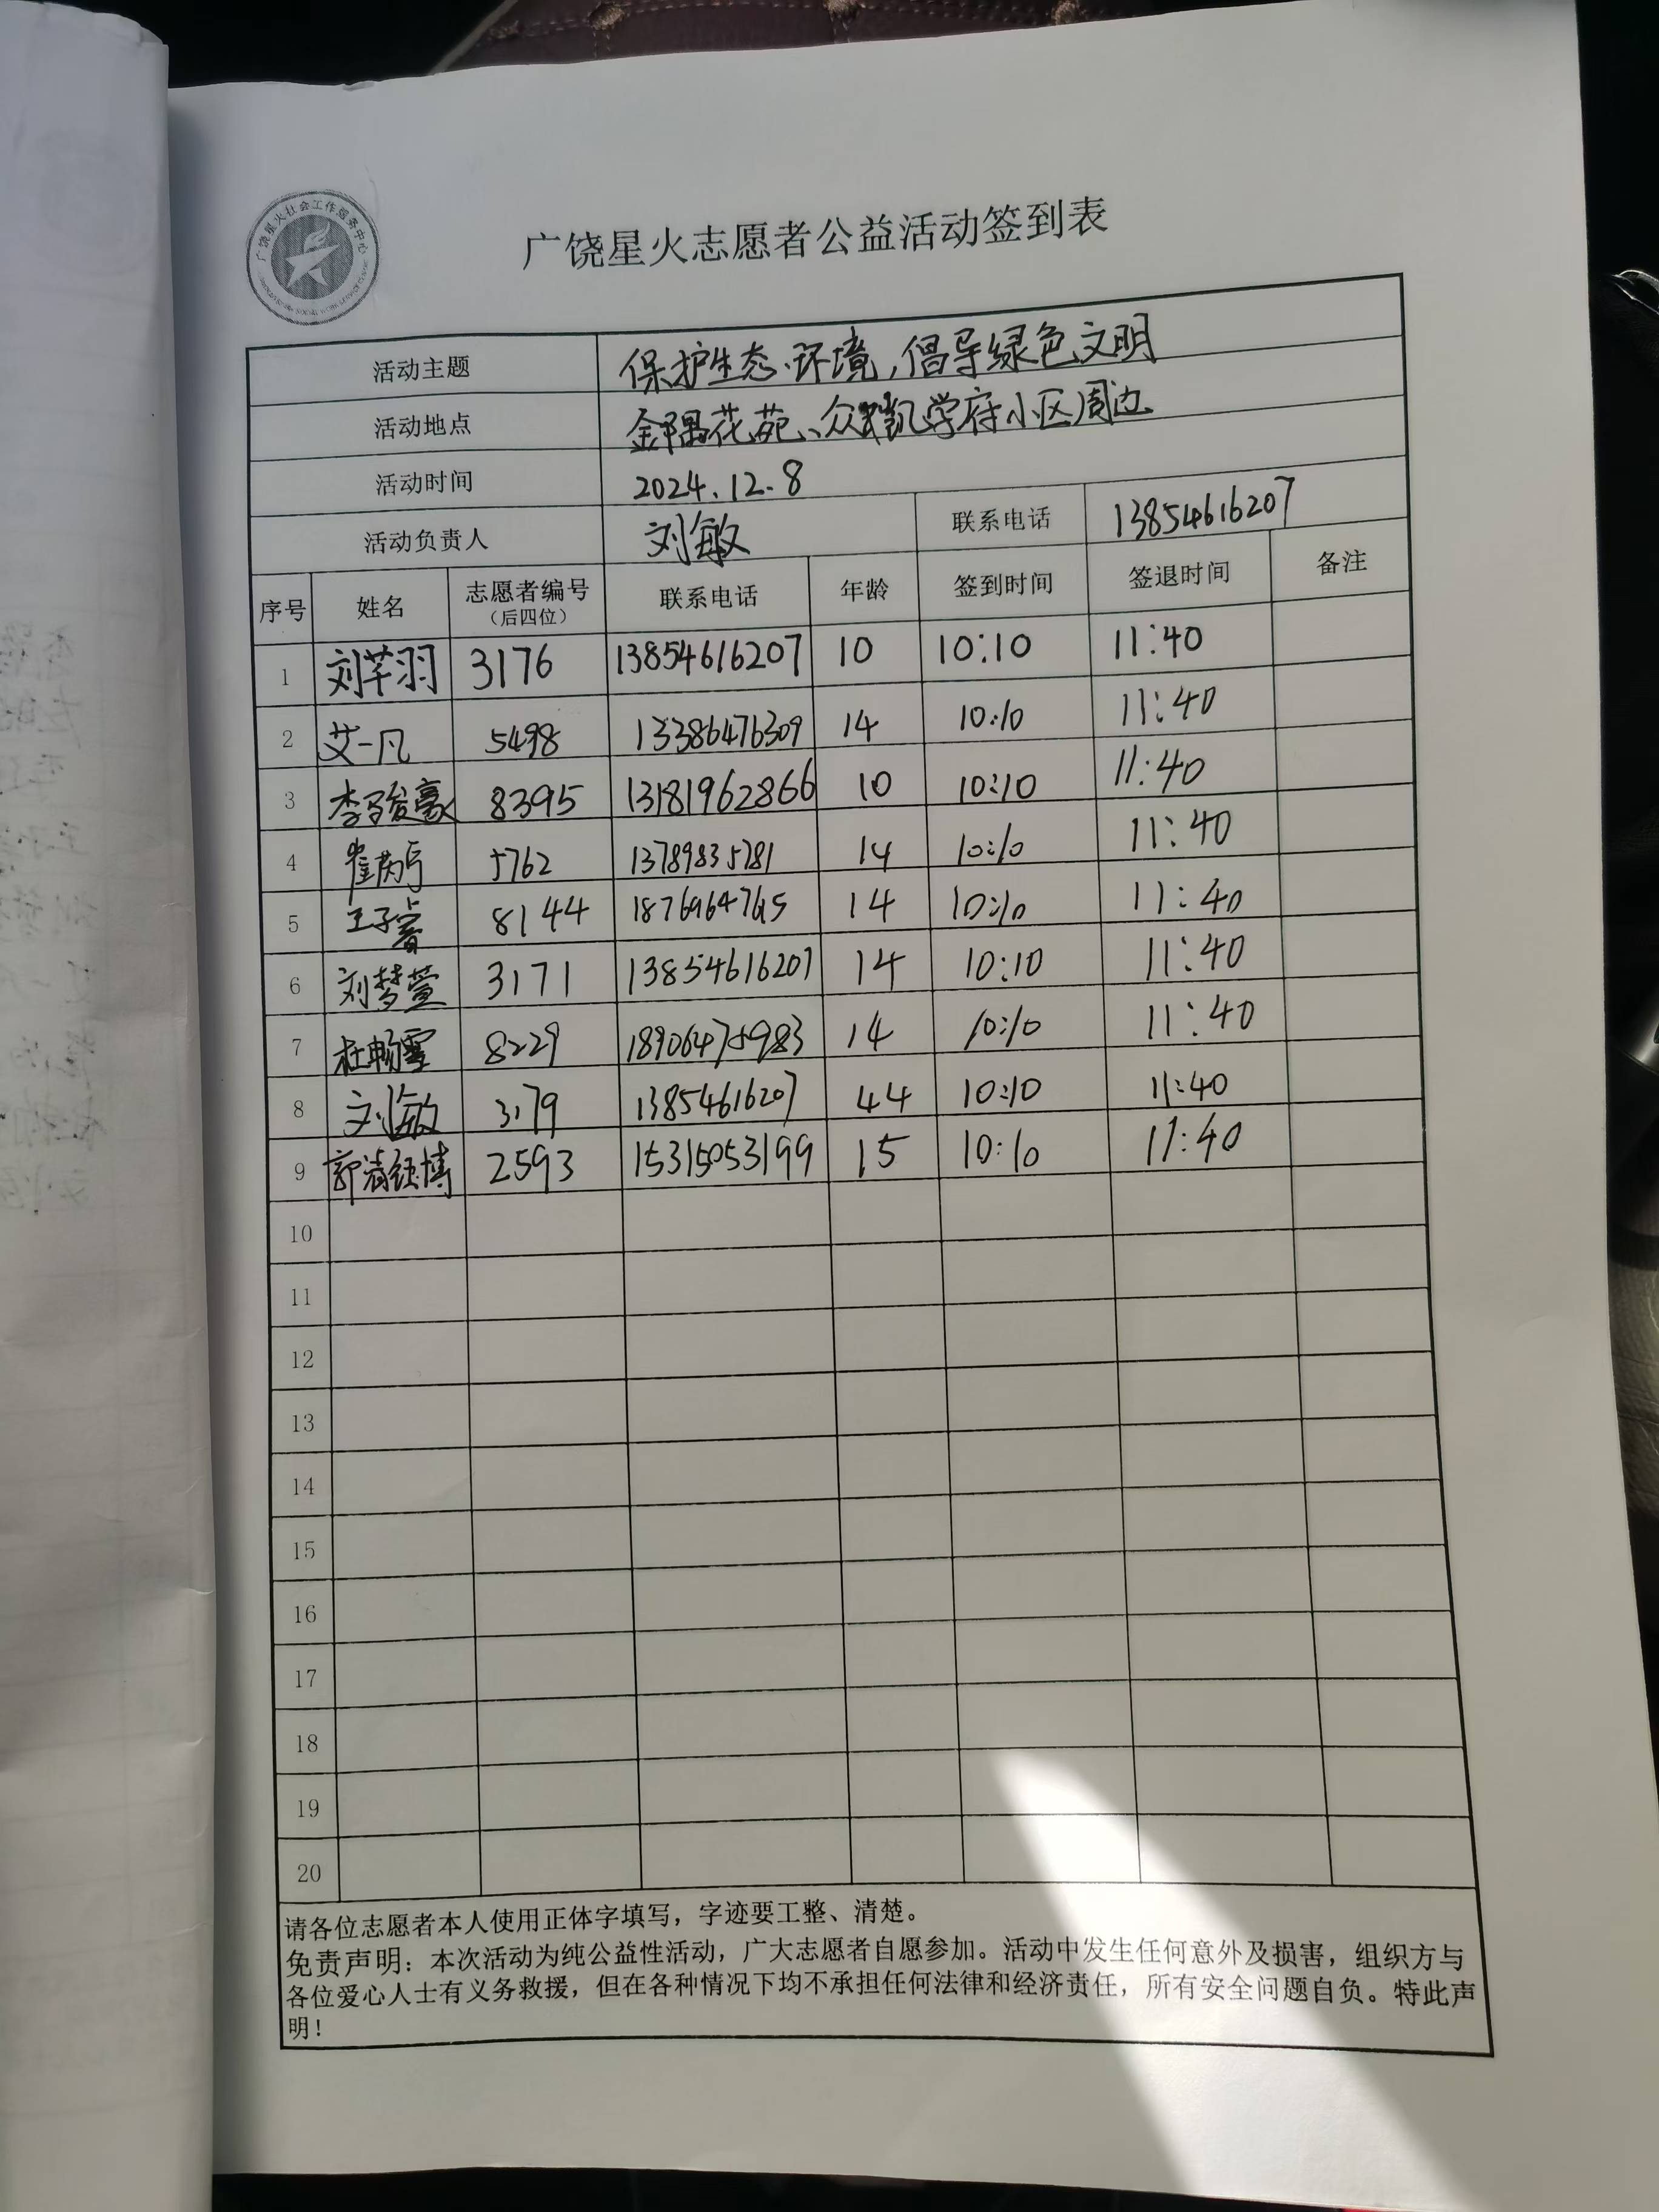 广饶星火社会工作服务中心
广饶星火志愿者公益活动签到表
活动主题 保护生态环境,倡导绿色文明
活动地点 金隅花苑、众凯学府小区周边
活动时间 2024.12.8
活动负责人 刘敏 联系电话 13854616207
序号 姓名 志愿者编号(后四位) 联系电话 年龄 签到时间 签退时间 备注
1 刘芊羽 3176 13854616207 10 10:10 11:40
2 艾一凡 5498 13386476309 14 10:10 11:40
3 李骏豪 8395 13181962866 10 10:10 11:40
4 崔芮 5762 13789835781 14 10:10 11:40
5 王子睿 8144 14 10:10 11:40
6 刘梦萱 3171 13854616207 14 10:10 11:40
7 杜畅雪 8229 18906475983 14 10:10 11:40
8 刘敏 3179 13854616207 44 10:10 11:40
9 郭 博 2593 15315053199 15 10:10 11:40
10
11
12
13
14
15
16
17
18
19
20
请各位志愿者本人使用正体字填写,字迹要工整、清楚。
免责声明:本次活动为纯公益性活动,广大志愿者自愿参加。活动中发生任何意外及损害,组织方与
各位爱心人士有义务救援,但在各种情况下均不承担任何法律和经济责任,所有安全问题自负。特此声
明!